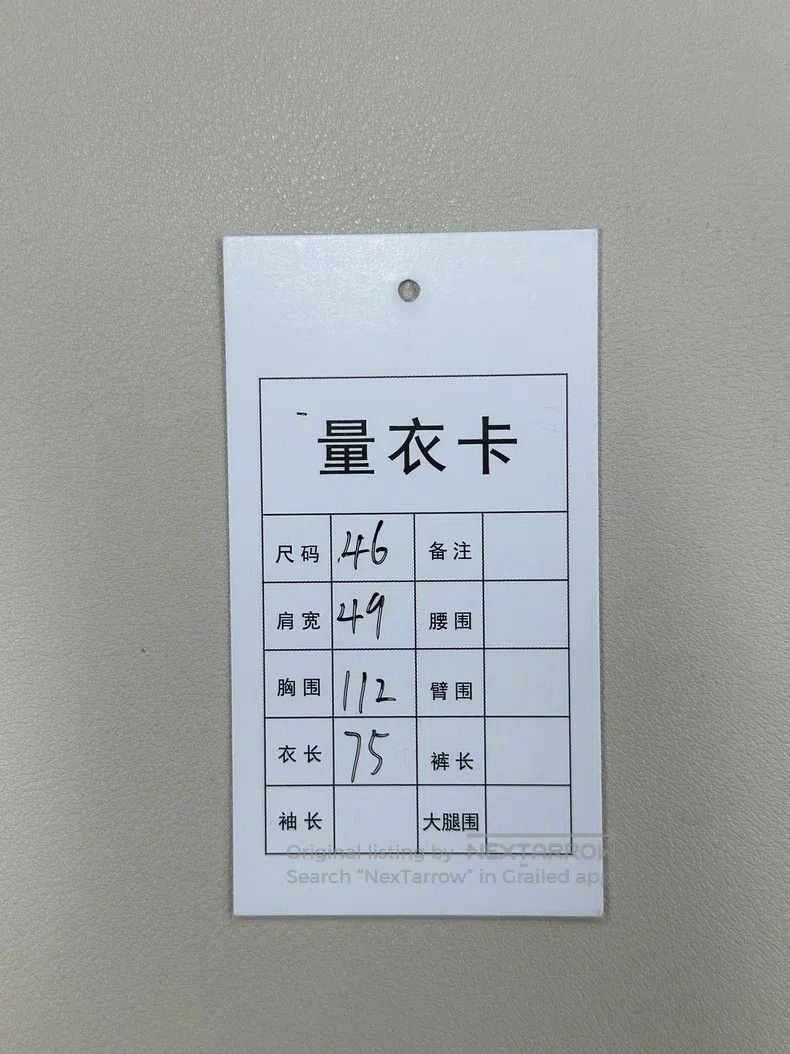 量衣卡
尺码 46 备注
肩宽 49 腰围
胸围 112 臂围
衣长 75 裤长
袖长 大腿围
Original listing by NEXTARROW
Search "NexTarrow" in Grailed app